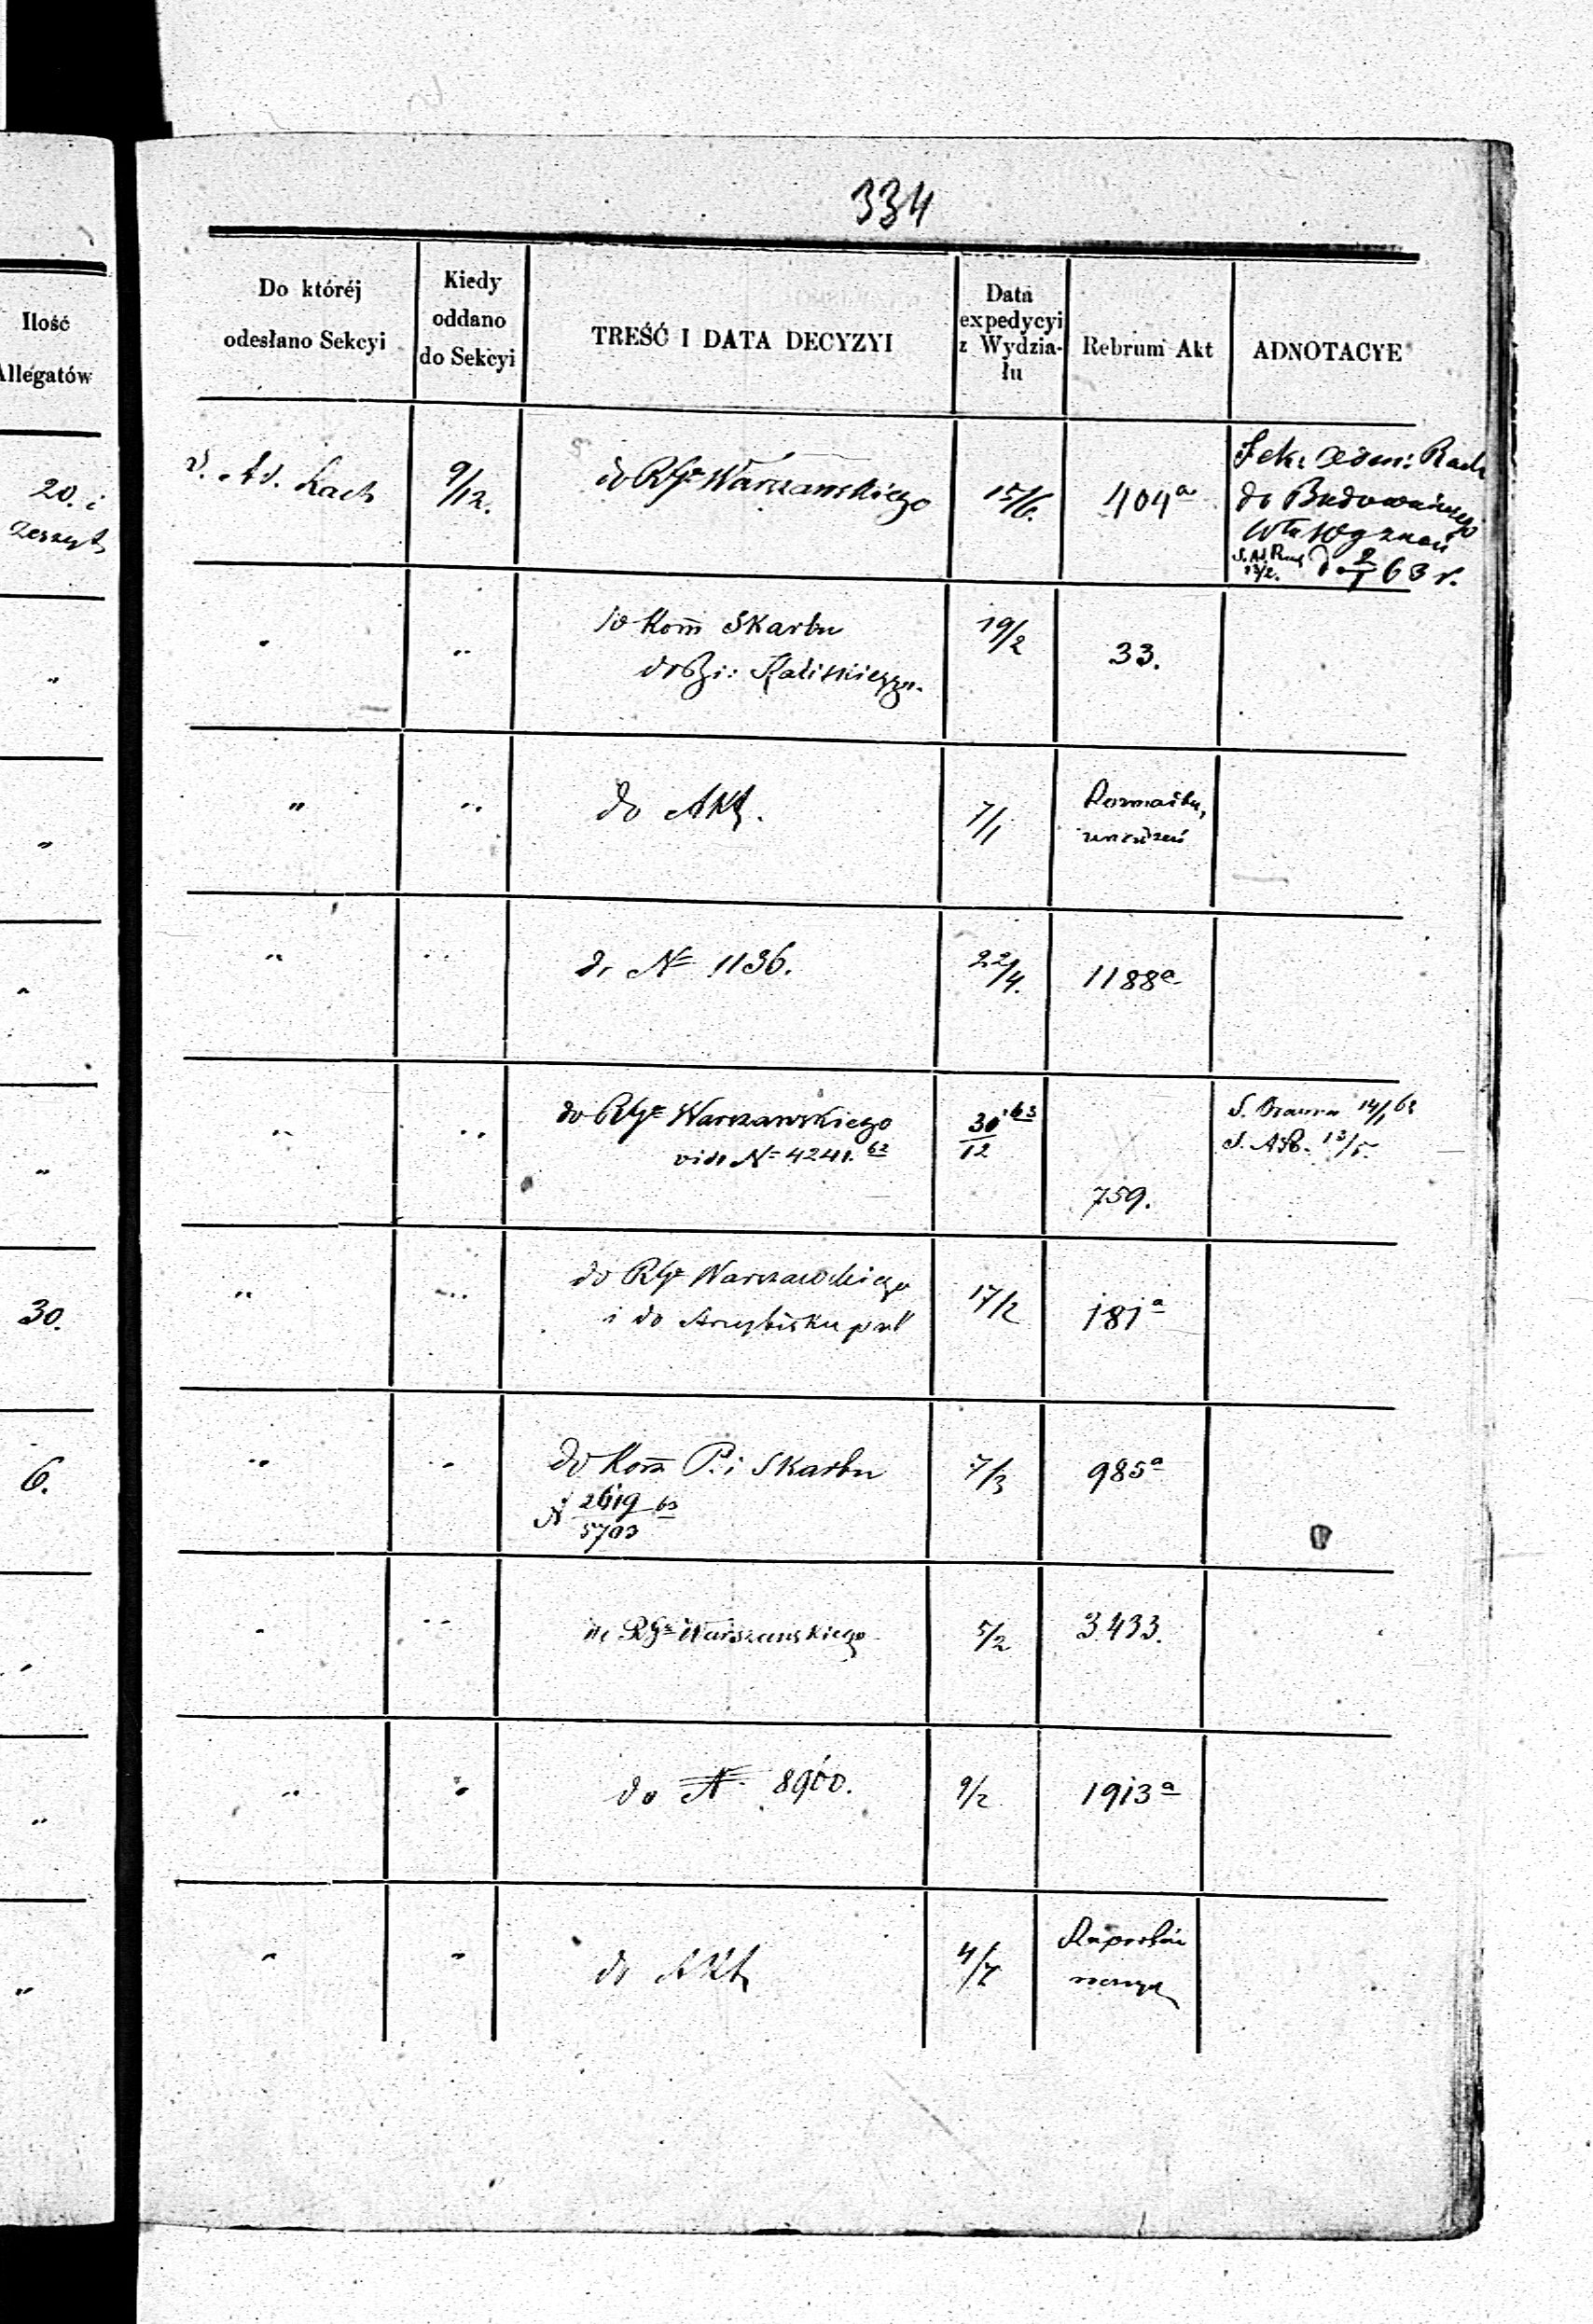 334
Ilość
Allegatów
Do któréj
odesłano Sekcyi
Kiedy
oddano
do Sekcyi
TREŚĆ I DATA DECYZYI
Data
expedycyi
z Wydzia-
łu
Rebrum Akt
ADNOTACYE
20. i
zeszyt
S. Ad. Rach
9/12.
do RGu Warszawskiego
15/6.
404a
Sek: Adm: Rach
do Budowniczego
d. 2/1 63 r.
"
"
"
do Kom Skarbu
do Kaliskiego.
19/2
33.
"
"
"
do Akt.
7/1
"
"
"
do No 1136.
22/4.
1188a
"
"
"
do RGu Warszawskiego
vide No 4241. 62
30/12 63
759.
S. 14/1 63
30.
"
"
do RGu Warszawskiego
i do Arcybiskupa
17/2
181a
6.
"
"
do Kom P. i Skarbu
N 2619/5703 63
7/3
985a
"
"
"
RGu Warszawskiego
5/2
3433.
"
"
"
do N 8900.
9/2
1913a
"
"
"
do Akt